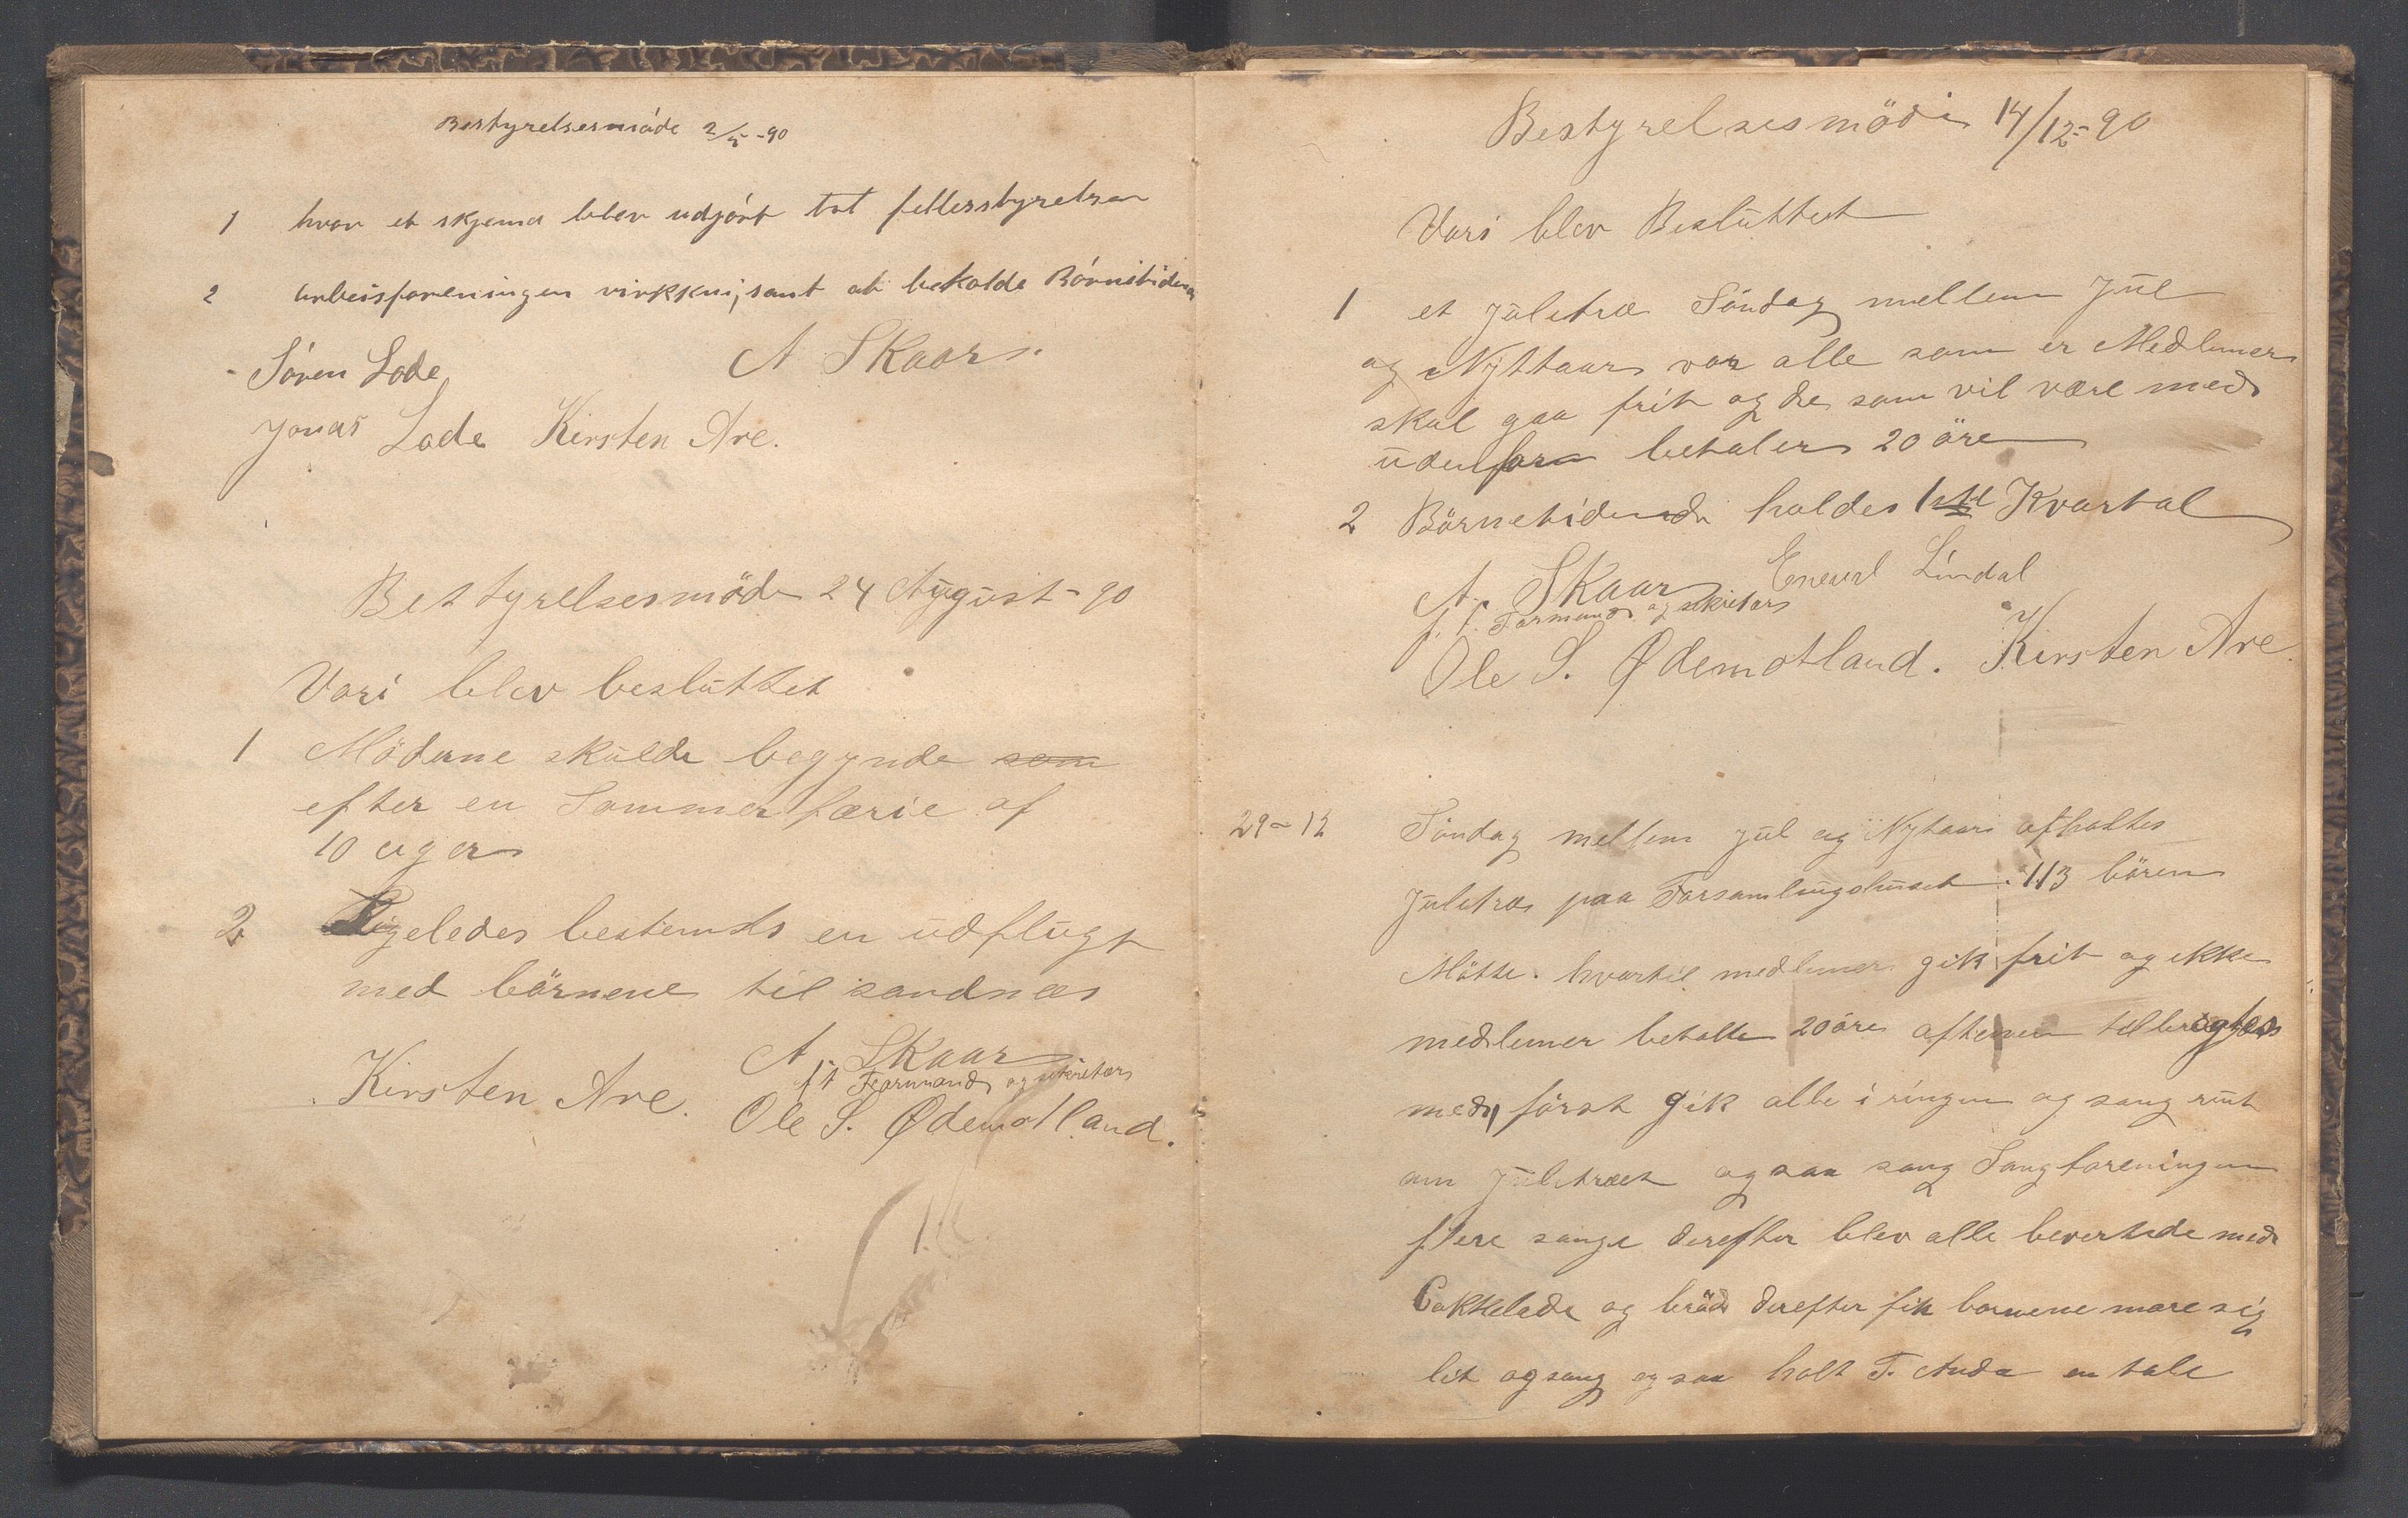 Bestyrelsesmøde 2/5-90
1 hvor et skjema blev udgjört tel fellesstyrelsen
2 arbeisforeningen virkkni, samt at beholde Börnetidene
Sören Lode A Skaar.
Jonas Lode Kirsten Are.
Bestyrelsesmöde 24 August-90
Vori blev besluttet
1 Möderne skulde begynde som
efter en Sommerfærie af
10 uger
2 Ligeledes bestemds en udflugt
med börnene til sandnæs
Kirsten Are. A Skaar
f t Formand og sekretær
Ole S. Ødemotland.
Bestyrelsesmöde 14/12-90
Vori blev Besluttet
1 et Juletræ Söndag mellem Jul
og Nÿttaar vor alle som er Medlemer
skal gaa frit og de som vil være med
udenfor betaler 20 öre
2 Börnetidende holdes 1ste Kvartal
A. Skaar Enevel Lindal
f. t. Formand og sekretær
Ole S. Ødemotland. Kirsten Are.
29-12 Söndag mellem Jul og Nytaar afholtes
Juletræ paa Forsamlingshuset. 113 bören
Mötte. hvortil medlemer gik frit og ikke
medlemer betalte 20 öre aftenen tilbragtes
med, först gik alle i ringen og sang runt
om Juletræet og saa sang Sangforeningen
flere sange derefter blev alle bevertede med
Cokkelade og bröd derefter fik bornene more sig
lit og sang og saa holt T. Anda en tale